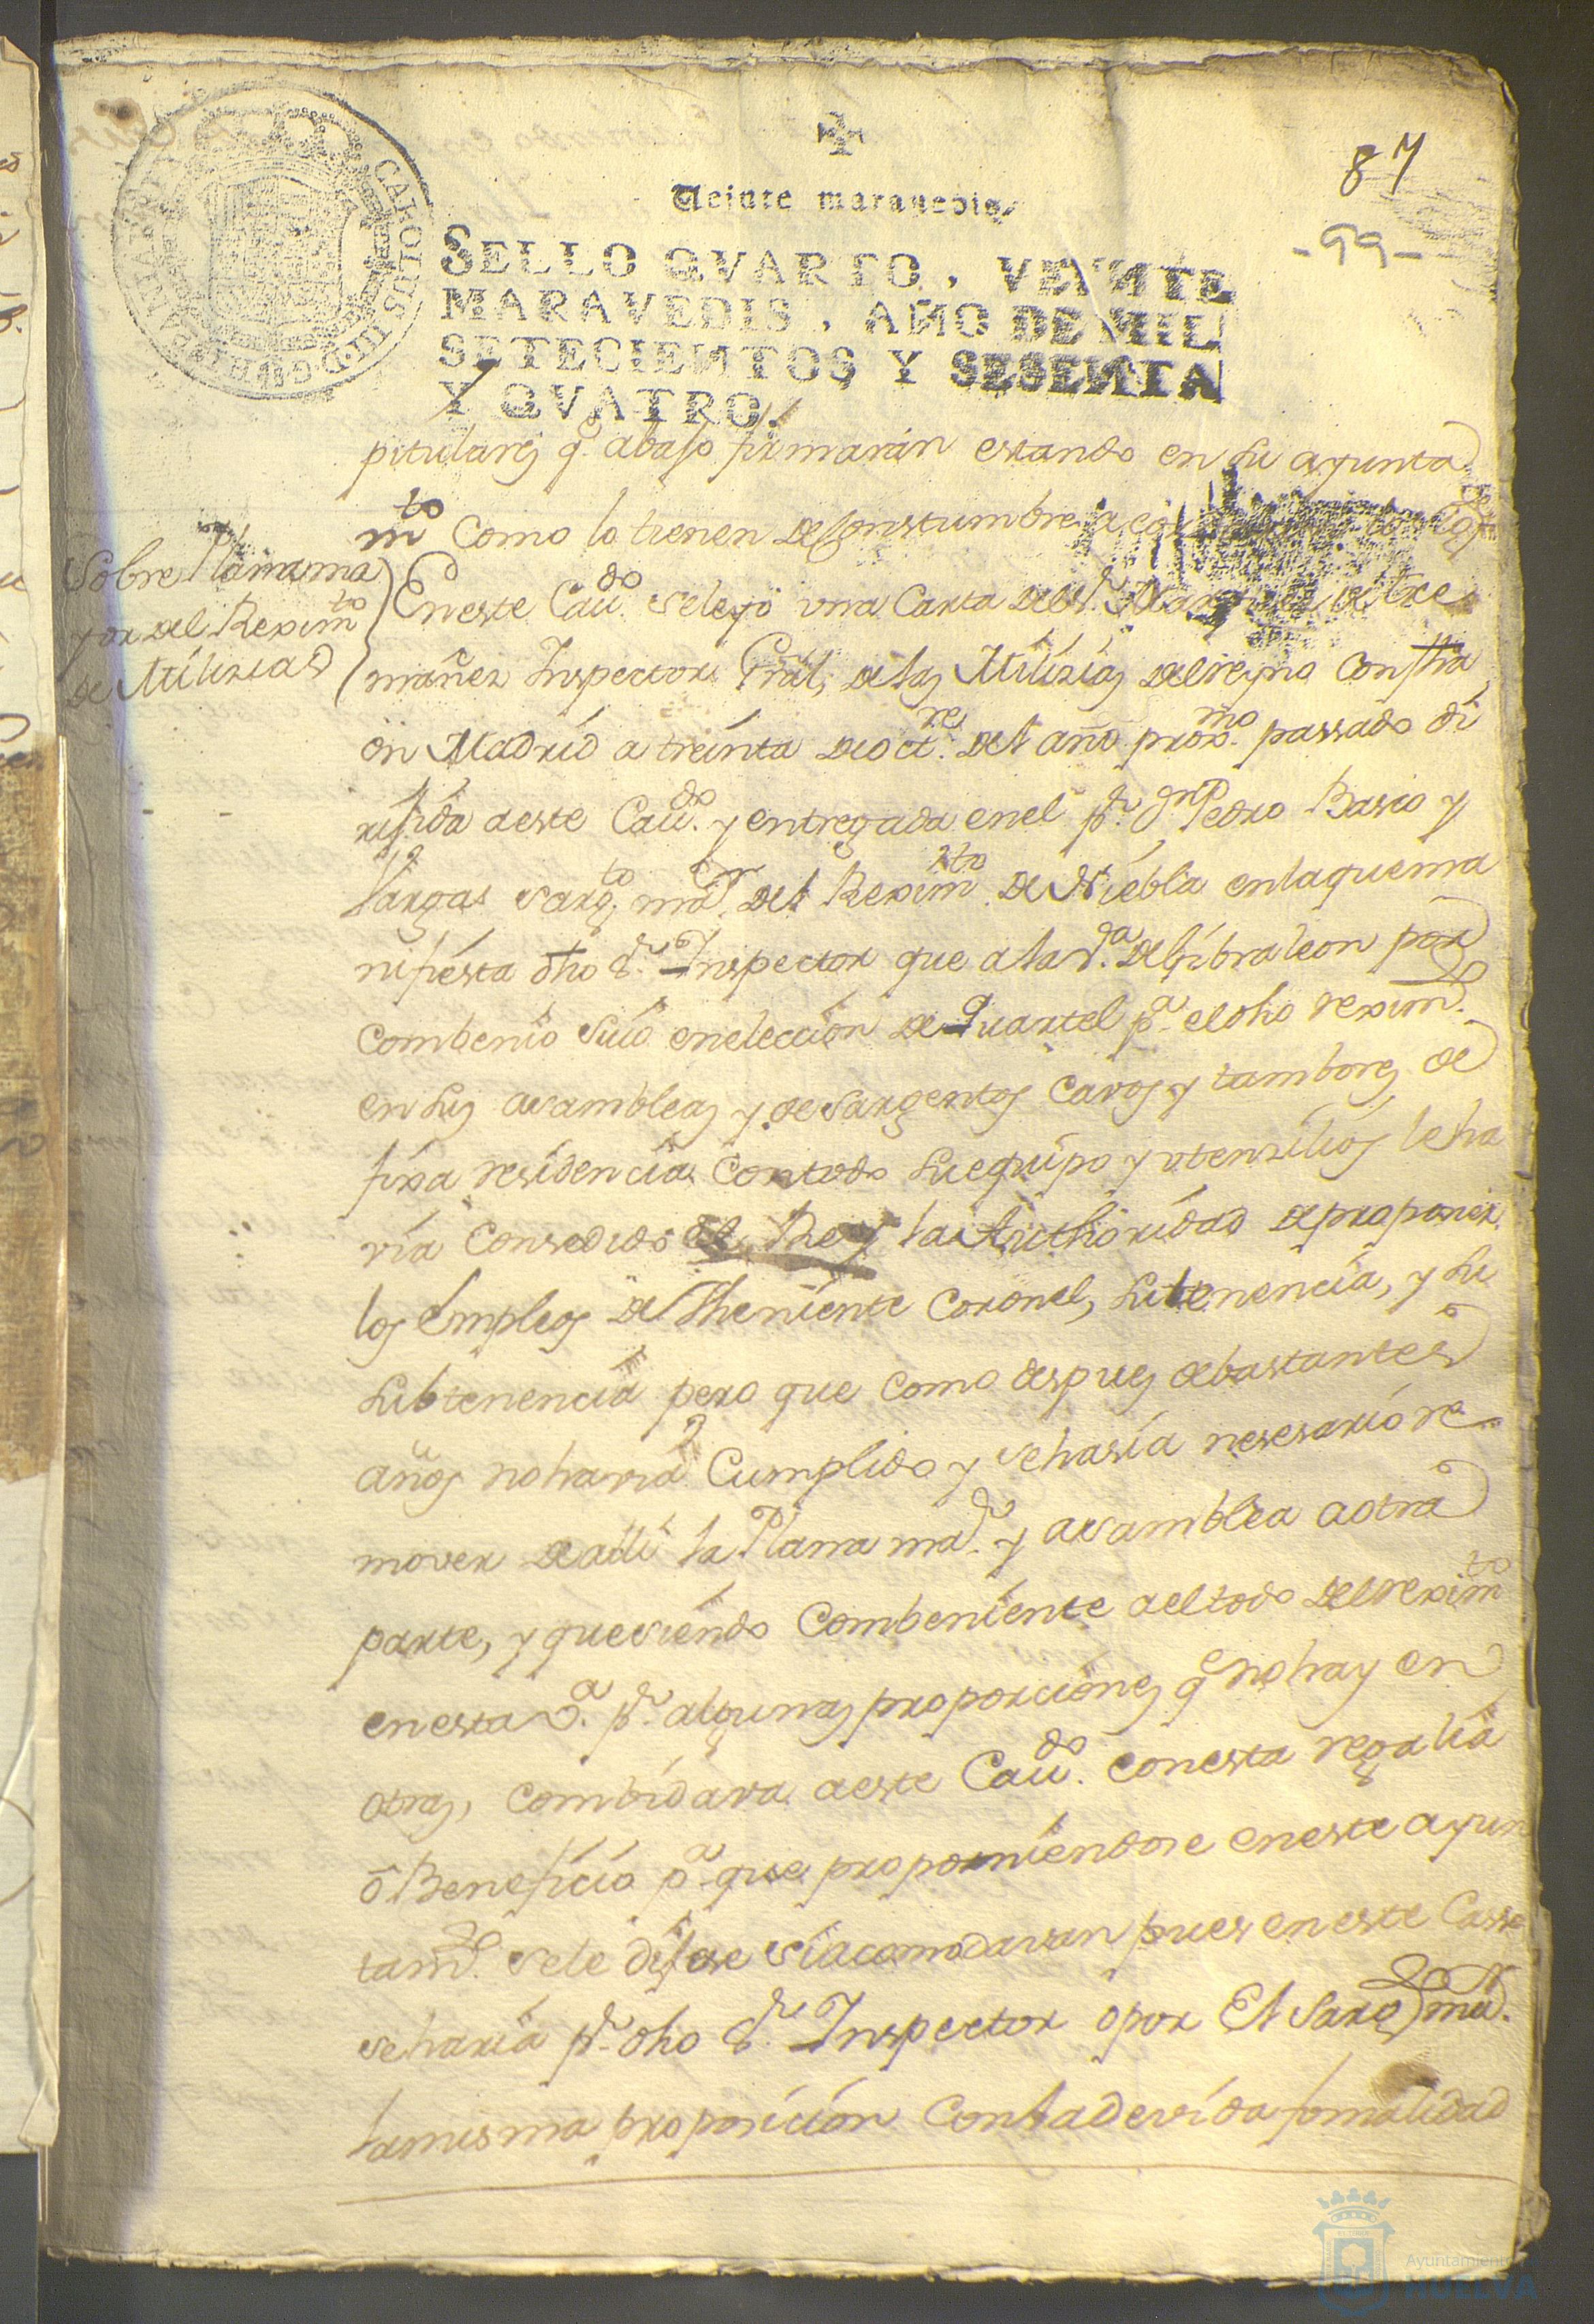 87
-99-
CAROLUS III D G HISPANIAR REX
Veinte maravedis.
SELLO QVARTO, VEINTE
MARAVEDIS, AÑO DE MIL
SETECIENTOS Y SESENTA
Y QVATRO.
pitulares q.e abajo firmarán estando en su ayunta
m.to como lo tienen de Constumbre
Sobre Plana ma
yor del Rexim.to
de Milizias
En este Cau.do se leyó una Carta del S.r Marq.s de tre
mañez Inspector Gral, de las Milizias del reyno con fha
en Madrid a treinta de oct.re del año prox.mo passado di
rijida a este Cau.do y entregada en el p.r d.n Pedro Basco y
Vargas sarg.to ma.r del Rexim.to de Niebla en la que ma
nifiesta dho S.r Inspector que a la V.a de Gibraleon por
combenio suio en eleccion de Quartel p.a el dho rexim.to
en sus asambleas y de sargentos cavos y tambores de
fixa residencia con todo su equipo y utenzilios le ha
vía consedido el Rey la Authoridad de proponer
los empleos de Theniente Coronel, su tenencia, y su
subtenencia pero que como despues de bastantes
años no havia cumplido y se hasía nesesario re
mover de alli la Plana ma.r y asamblea a otra
parte, y que siendo combeniente a el todo del rexim.to
en esta V.a p.r algunas proporciones q.e no hay en
otras, combidava a este Cau.do con esta regalia
ó Beneficio p.a que proponiendose en este ayun
tam.to se le dijese si acomodavan pues en este Casso
se haria p.r dho S.r Inspector o por El Sarg.to ma.r
la misma proposicion con la devida formalidad
Ayuntamiento
HUELVA